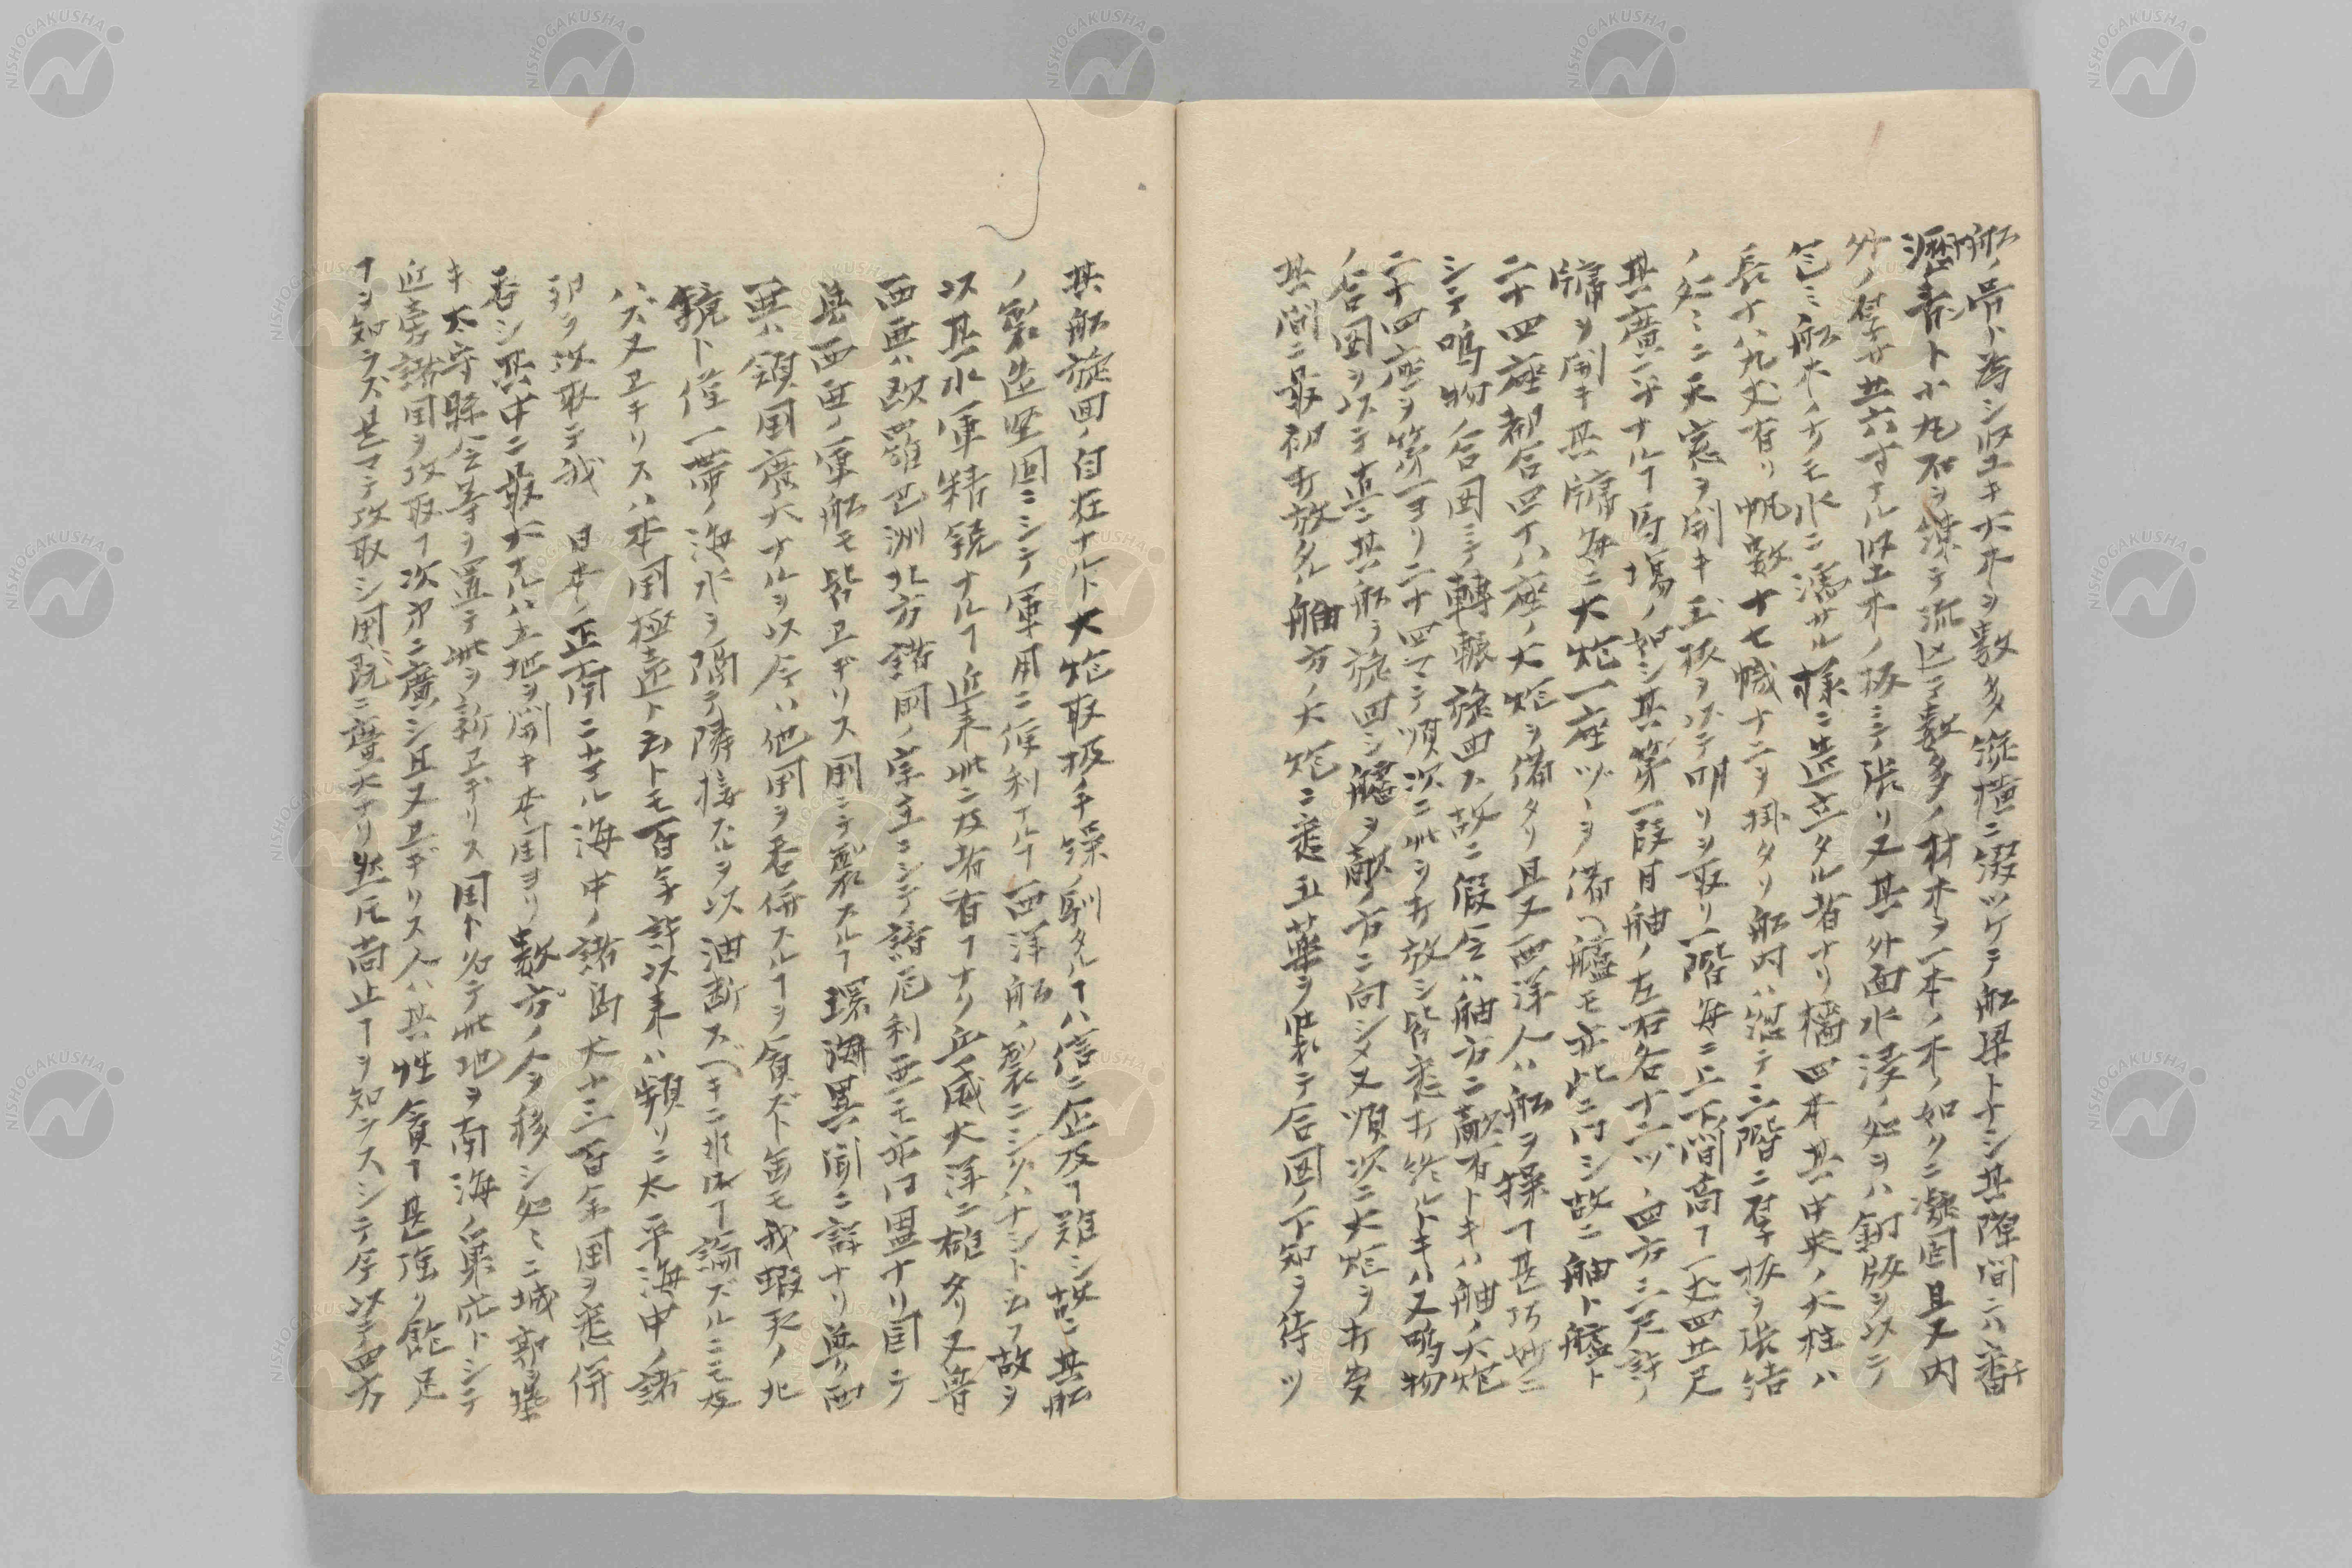 船ノ骨ト為シ堅キ大木ヲ数多縦横ニ綴ツケテ船梁トナシ其隙間ニハ番
瀝青ト小丸石ヲ練テ流込テ数多ノ材木ヲ一本ノ木ノ如クニ凝固且又内
外ノ厚サ廿六寸ナル堅木ノ板ニテ張リ又其外面水浸ノ処ヲハ銅版ヲ以テ
包ミ船木ノ少モ水ニ濡サル様ニ造立タル者ナリ檣四本其中央ノ大柱ハ
長十八九丈有リ帆数十七幟十二ヲ掛タリ船内ハ惣テ三階ニ厚板ヲ張詰
ノ処ミニ天窓ヲ開キ玉板ヲ以テ明リヲ取リ一階毎ニ上下間高ヿ一丈四五尺
其廣ニ平ナルヿ馬場ノ如シ其第一段目舳ノ左右各十二ツヽ四方三尺許ノ
牖ヲ開キ其牖毎ニ大炮一座ツヽヲ備ヘ艫モ亦此ニ同シ故ニ舳ト艫ト
二十四座都合四十八座ノ大炮ヲ備タリ且又西洋人ハ船ヲ操ヿ甚巧妙ニ
シテ鳴物ノ合図ニテ轉輾旋回ス故ニ假令ハ舳方ニ敵有トキハ舳ノ大炮
二十四座ヲ第一ヨリ二十四マテ順次ニ此ヲ打放シ皆悉打終ルトキハ又鳴物
ノ合図ヲ以テ直ニ其船ヲ旋回シ艫ヲ敵ノ方ニ向シメ又順次ニ大炮ヲ打発
其間ニ最初打放タル舳方ノ大炮ニ悉玉薬ヲ装テ合図ノ下知ヲ待ツ
其船旋回ノ自在ナルト大炮取扱手練ノ馴タルヿハ信ニ企及ヿ難シ故ニ其船
ノ製造堅固ニシテ軍用ニ便利ナルヿ西洋船ノ製ニシクハナシト云フ故ヲ
以其水軍精鋭ナルヿ近来此ニ及者有ヿナリ兵威大洋ニ雄タリ又音
西亜ハ欧羅巴洲北方諸国ノ宗主ニシテ諳厄利亜モ亦同盟ナリ聞テ
呂西亜ノ軍船モ皆ヱギリス国ニテ製スルヿ環海異聞ニ詳ナリ魯西
亜ハ領国廣大ナルヲ以今ハ他国ヲ呑併スルヿヲ貪ズト雖モ我蝦夷ノ北
鏡ト僅一帯ノ海水ヲ隔テ隣接スルヲ以油断スベキニ非ルヿ論ズルニモ及
ハズ又ヱギリスハ本国極遠ト云トモ百年許以来ハ頻リニ太平海中ノ諸
邪ヲ攻取テ我　日本ノ正南ニ當ル海中ノ諸島大小三百余国ヲ悉併
呑シ其中ニ最大ナルハ土地ヲ開キ本国ヨリ数万ノ人ヲ移シ処ミニ城郭ヲ築
キ太守縣令等ヲ置テ此ヲ新ヱギリス国ト名テ此地ヲ南海ノ巣穴トシテ
近旁諸国ヲ攻取ヿ次第ニ廣シ且又ヱギリス人ハ其性貪ヿ甚強リ飽足
ヿヲ知ラズ是マテ攻取シ国既ニ廣大ナリ然圧尚止ヿヲ知ラスシテ今以テ四方